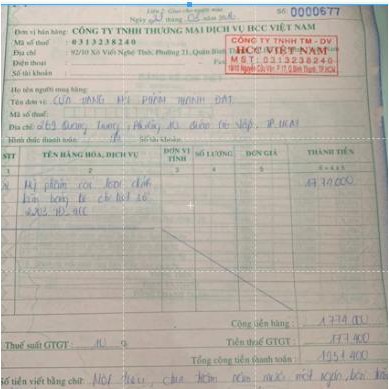 Liên 2: Giao cho người mua
Số: 0000677
Ngày tháng 03 năm
Đơn vị bán hàng: CÔNG TY TNHH THƯƠNG MẠI DỊCH VỤ HCC VIỆT NAM
Mã số thuế : 0313238240
Địa chỉ : 92/10 Xô Viết Nghệ Tĩnh, Phường 21, Quận Bình
Điện thoại : Fax
Số tài khoản :
CÔNG TY TNHH TM - DV
HCC VIỆT NAM
MST: 0313238240
Họ tên người mua hàng:
Tên đơn vị: CỬA HÀNG MỸ PHẨM THÀNH ĐẠT
Mã số thuế:
Địa chỉ: 269 Quang Trung, Phường 10, Quận Gò Vấp, TP.HCM
Hình thức thanh toán: TM Số tài khoản:
STT TÊN HÀNG HÓA, DỊCH VỤ ĐƠN VỊ TÍNH SỐ LƯỢNG ĐƠN GIÁ THÀNH TIỀN
1 2 3 4 5 6 = 4 x 5
Mỹ phẩm các loại đính 1.774.000
kèm bảng kê chi tiết số
Cộng tiền hàng : 1.774.000
Thuế suất GTGT : 10 % Tiền thuế GTGT : 177.400
Tổng cộng tiền thanh toán : 1.951.400
Số tiền viết bằng chữ: Một triệu chín trăm năm mươi mốt ngàn bốn trăm